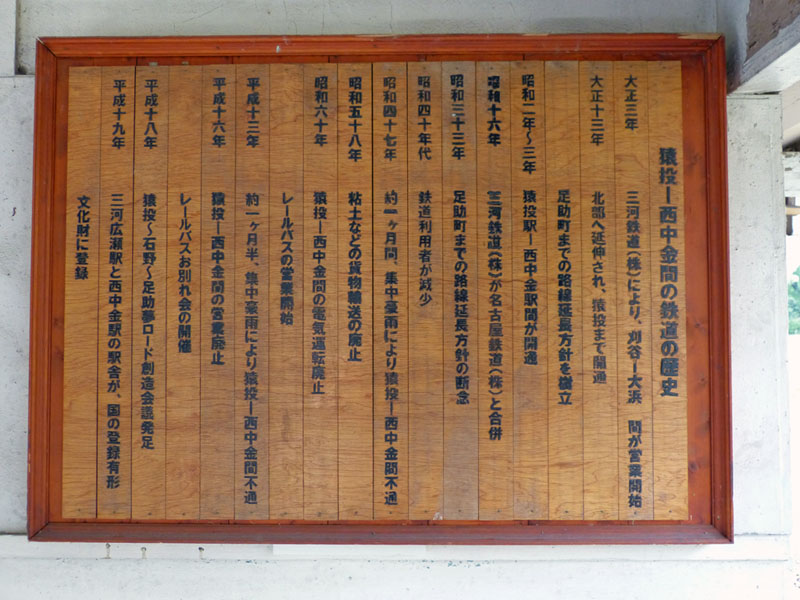 猿投ー西中金間の鉄道の歴史
大正三年 三河鉄道(株)により、刈谷ー大浜 間が営業開始
大正十三年 北部へ延伸され、猿投まで開通
足助町までの路線延長方針を樹立
昭和二年~三年 猿投駅ー西中金駅間が開通
昭和十六年 三河鉄道(株)が名古屋鉄道(株)と合併
昭和三十三年 足助町までの路線延長方針の断念
昭和四十年代 鉄道利用者が減少
昭和四十七年 約一ヶ月間、集中豪雨により猿投ー西中金間不通
昭和五十八年 粘土などの貨物輸送の廃止
昭和六十年 猿投ー西中金間の電気運転廃止
レールバスの営業開始
平成十三年 約一ヶ月半、集中豪雨により猿投ー西中金間不通
平成十六年 猿投ー西中金間の営業廃止
レールバスお別れ会の開催
平成十八年 猿投~石野~足助夢ロード創造会議発足
平成十九年 三河広瀬駅と西中金駅の駅舎が、国の登録有形
文化財に登録